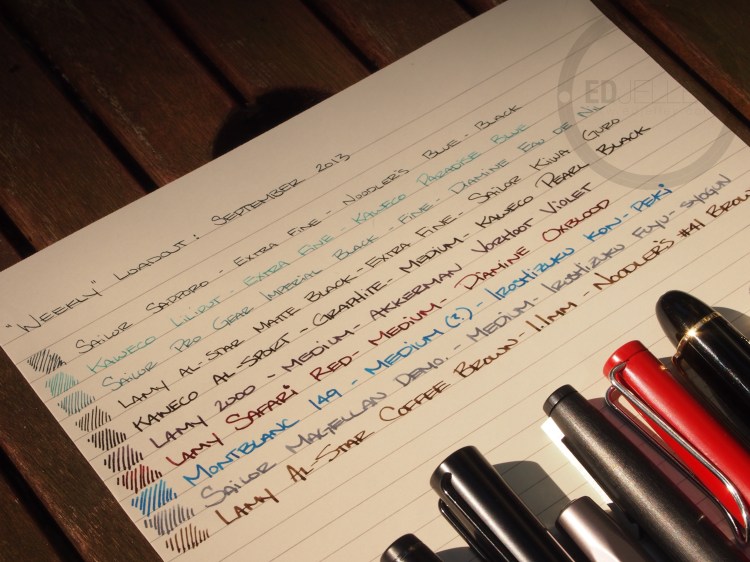 "Weekly" Loadout: September 2013
Sailor Sapporo - Extra Fine - Noodler's Blue - Black
Kaweco Liliput - Extra Fine - Kaweco Paradise Blue
Sailor Pro Gear Imperial Black - Fine - Diamine Eau de Nil
Lamy Al-Star Matte Black - Extra Fine - Sailor Kiwa Guro
Kaweco Al-Sport - Graphite - Medium - Kaweco Pearl Black
Lamy 2000 - Medium - Akkerman Voorhout Violet
Lamy Safari Red - Medium - Diamine Oxblood
Montblanc 149 - Medium (3) - Iroshizuku Kon-Peki
Sailor Magellan Demo. - Medium - Iroshizuku Fuyu-Syogun
Lamy Al-Star Coffee Brown - 1.1mm - Noodler's #41 Brown
ED JELLEY